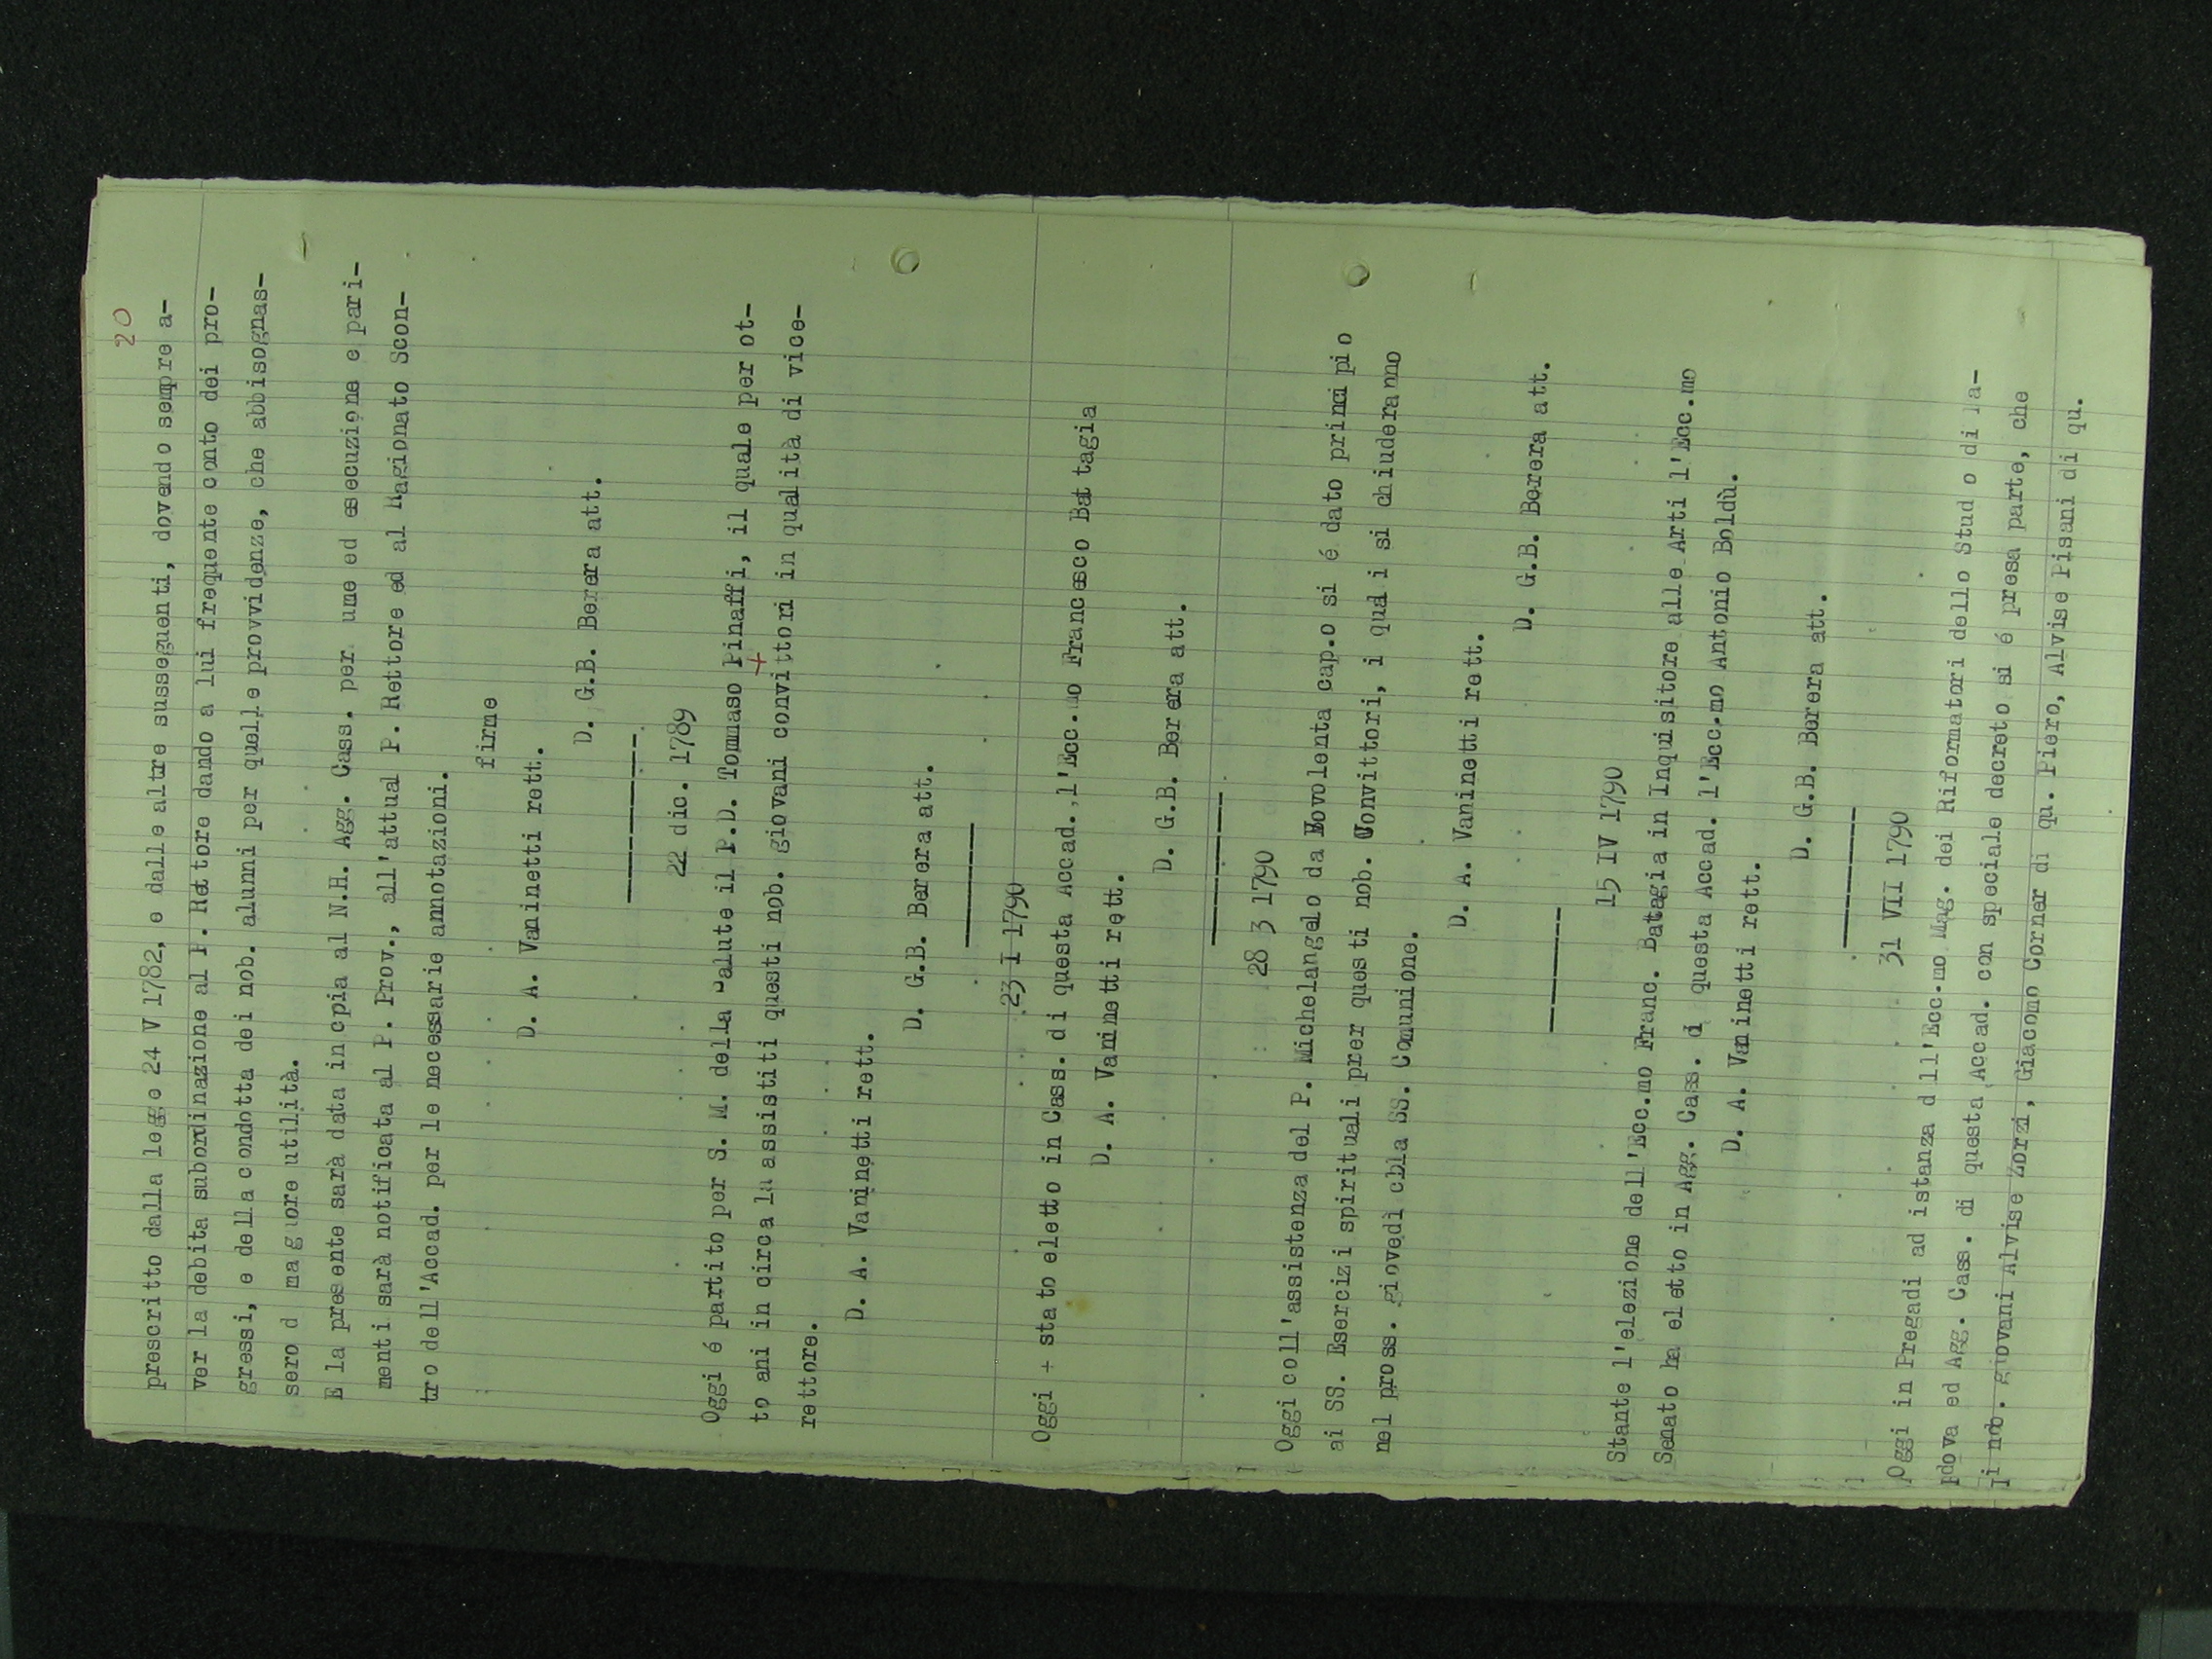 20
prescritto dalla legge 24 V 1782, e dalle altre susseguenti, dovendo sempre a-
ver la debita subordinazione al P. Rettore dando a lui frequente conto dei pro-
gressi, e della condotta dei nob. alunni per quelle providenze, che abbisognas-
sero d maguore utilità.
E la presente sarà data in cpia al N.H. Agg. Cass. per ume ed esecuzione e pari-
menti sarà notificata al P. Prov., all'attual P. Rettore ed al Ragionato Scon-
tro dell'Accad. per le necessarie annotazioni.
firme
D. A. Vaninetti rett.
D. G.B. Berera att.
----------
22 dic. 1789
Oggi é partito per S. M. della Salute il P.D. Tommaso Pinaffi, il quale per ot-
to ani in circa la assistiti questi nob. giovani convittori in qualità di vice-
rettore.
D. A. Vaninetti rett.
D. G.B. Berera att.
----------
23 I 1790
Oggi + stato eletto in Cass. di questa Accad., l'Ecc.mo Francesco Battagia
D. A. Vaninetti rett.
D. G.B. Berera att.
----------
28 3 1790
Oggi coll'assistenza del P. Michelangelo da Bovolenta cap.o si é dato principio
ai SS. Esercizi spirituali prer questi nob. Convittori, i quai si chiuderanno
nel pross. giovedì cbla SS. Comunione.
D. A. Vaninetti rett.
D. G.B. Berera att.
----------
15 IV 1790
Stante l'elezione dell'Ecc.mo Franc. Batagia in Inquisitore alle Arti l'Ecc.mo
Senato ha eletto in Agg. Cass. d questa Accad. l'Ecc.mo Antonio Boldù.
D. A. Vaninetti rett.
D. G.B. Berera att.
----------
31 VII 1790
Oggi in Pregadi ad istanza d ll'Ecc.mo Mag. dei Riformatori dello Stud o di la-
pdova ed Agg. Cass. di questa Accad. con speciale decreto si é presa parte, che
Ii nob. giovani Alvise Zorzi, Giacomo Corner di qu. Piero, Alvise Pisani di qu.